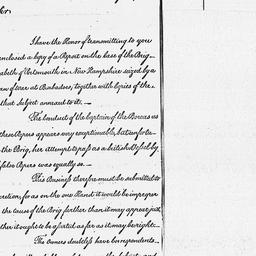 I have the Honor of transmitting to you
enclosed a Copy of a Report on the Case of the Brig
abeth of Portsmouth in New Hampshire seized by a
of war at Barbadoes, together with Copies of the
that Subject annexed to it.—
The Conduct of the Captain of the Boreas as
these Papers appears very exceptionable, but unfortu-
the Brig, her attempt to pass as a british Vessel by
false Papers was equally so.—
This Business therefore must be submitted to
cretion, for as on the one Hand it would be improper
the Cause of the Brig further than it may appear just,
ther it ought to be asserted as far as it may be right:—
The Owners doubtless have correspondents